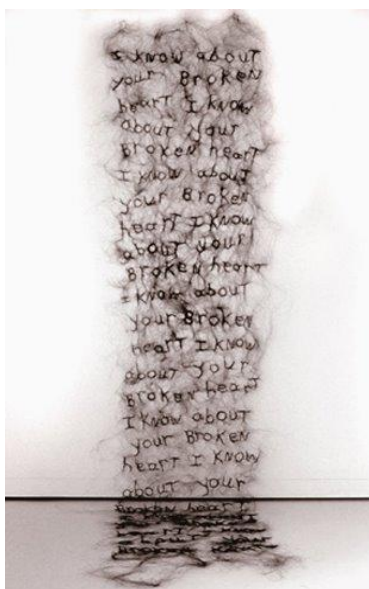 I know about
your Broken
hearT I know
about your
Broken hearT
I know about
your Broken
hearT I know
about your
Broken hearT
I know about
your Broken
hearT I know
about your
Broken hearT
I know about
your Broken
hearT I know
about your
Broken hearT